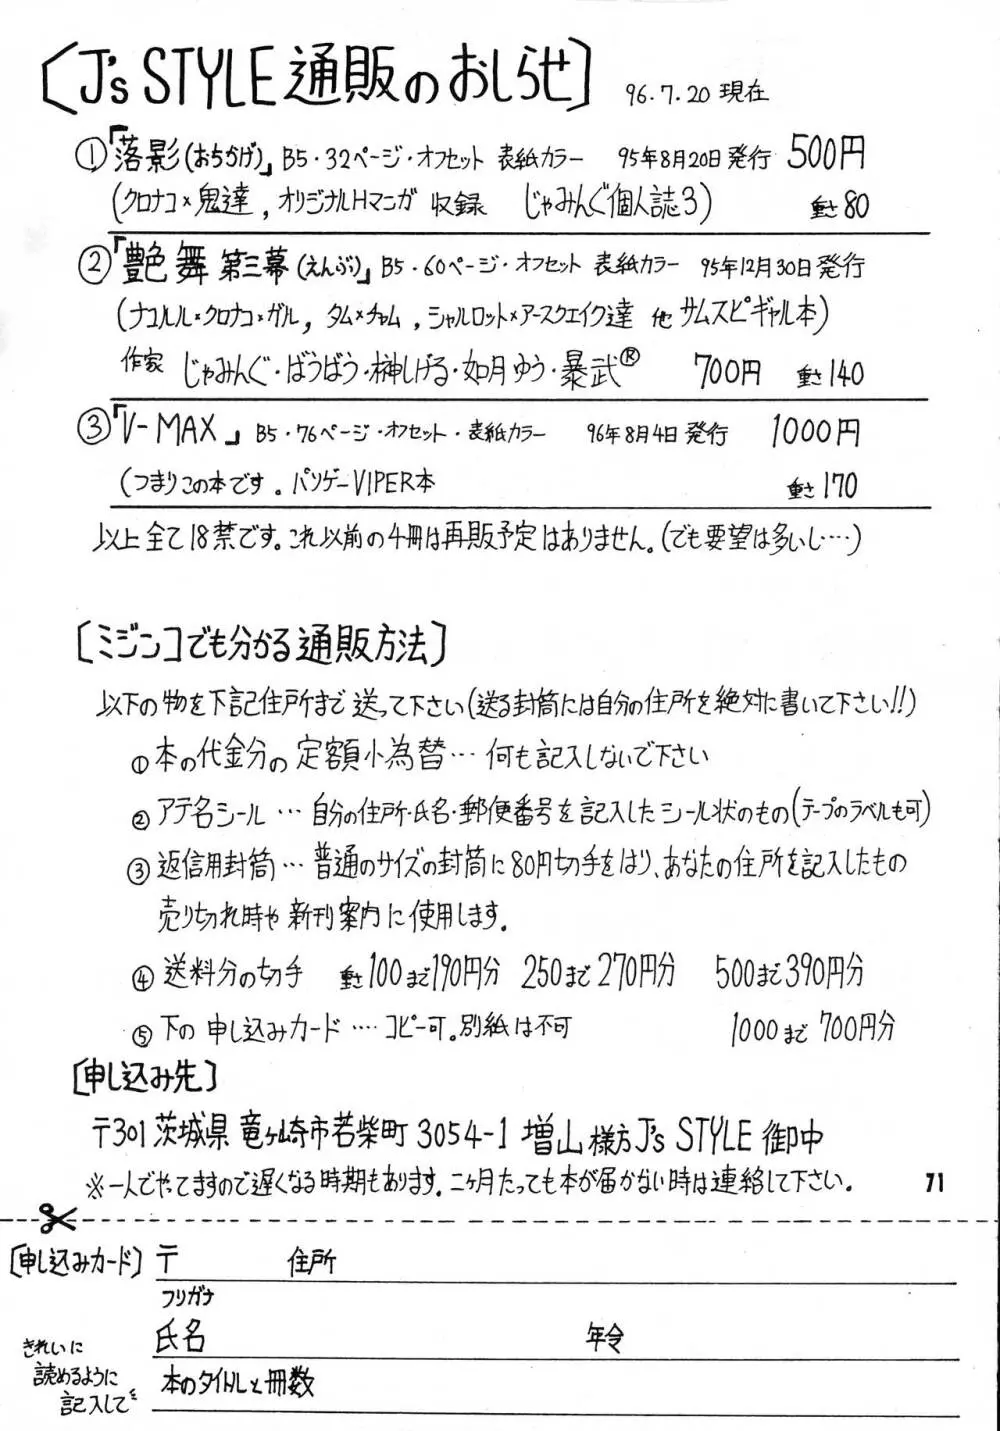 ［J's STYLE 通販のおしらせ］ 96.7.20 現在
①「落影(おちかげ)」B5・32ページ・オフセット 表紙カラー 95年8月20日発行 500円
(クロナコ×鬼達, オリジナルHマンガ 収録 じゃみんぐ個人誌3) 重さ80
②「艶舞 第三幕(えんぶ)」B5・60ページ・オフセット 表紙カラー 95年12月30日発行
(ナコルル×クロナコ×ガル, タム×チャム, シャルロット×アースクェイク達 他 サムスピギャル本)
作家 じゃみんぐ・ばうばう・榊しげる・如月ゆう・暴武® 700円 重さ140
③「V-MAX」B5・76ページ・オフセット・表紙カラー 96年8月4日発行 1000円
(つまりこの本です。パソゲーVIPER本 重さ170
以上全て18禁です。これ以前の4冊は再販予定はありません。(でも要望は多いし‥‥)
［ミジンコでも分かる通販方法］
以下の物を下記住所まで送って下さい(送る封筒には自分の住所を絶対に書いて下さい!!)
①本の代金分の定額小為替…何も記入しないで下さい
②アテ名シール…自分の住所・氏名・郵便番号を記入したシール状のもの(テープのラベルも可)
③返信用封筒…普通のサイズの封筒に80円切手をはり、あなたの住所を記入したもの
売り切れ時や新刊案内に使用します。
④送料分の切手 重さ100まで190円分 250まで270円分 500まで390円分
⑤下の申し込みカード‥‥コピー可。別紙は不可 1000まで700円分
［申し込み先］
〒301 茨城県竜ヶ崎市若柴町3054-1 増山様方J's STYLE 御中
※一人でやってますので遅くなる時期もあります。二ヶ月たっても本が届かない時は連絡して下さい。
71
［申し込みカード］ 〒 住所
フリガナ
氏名 年令
きれいに
読めるように
記入してẽ
本のタイトルと冊数